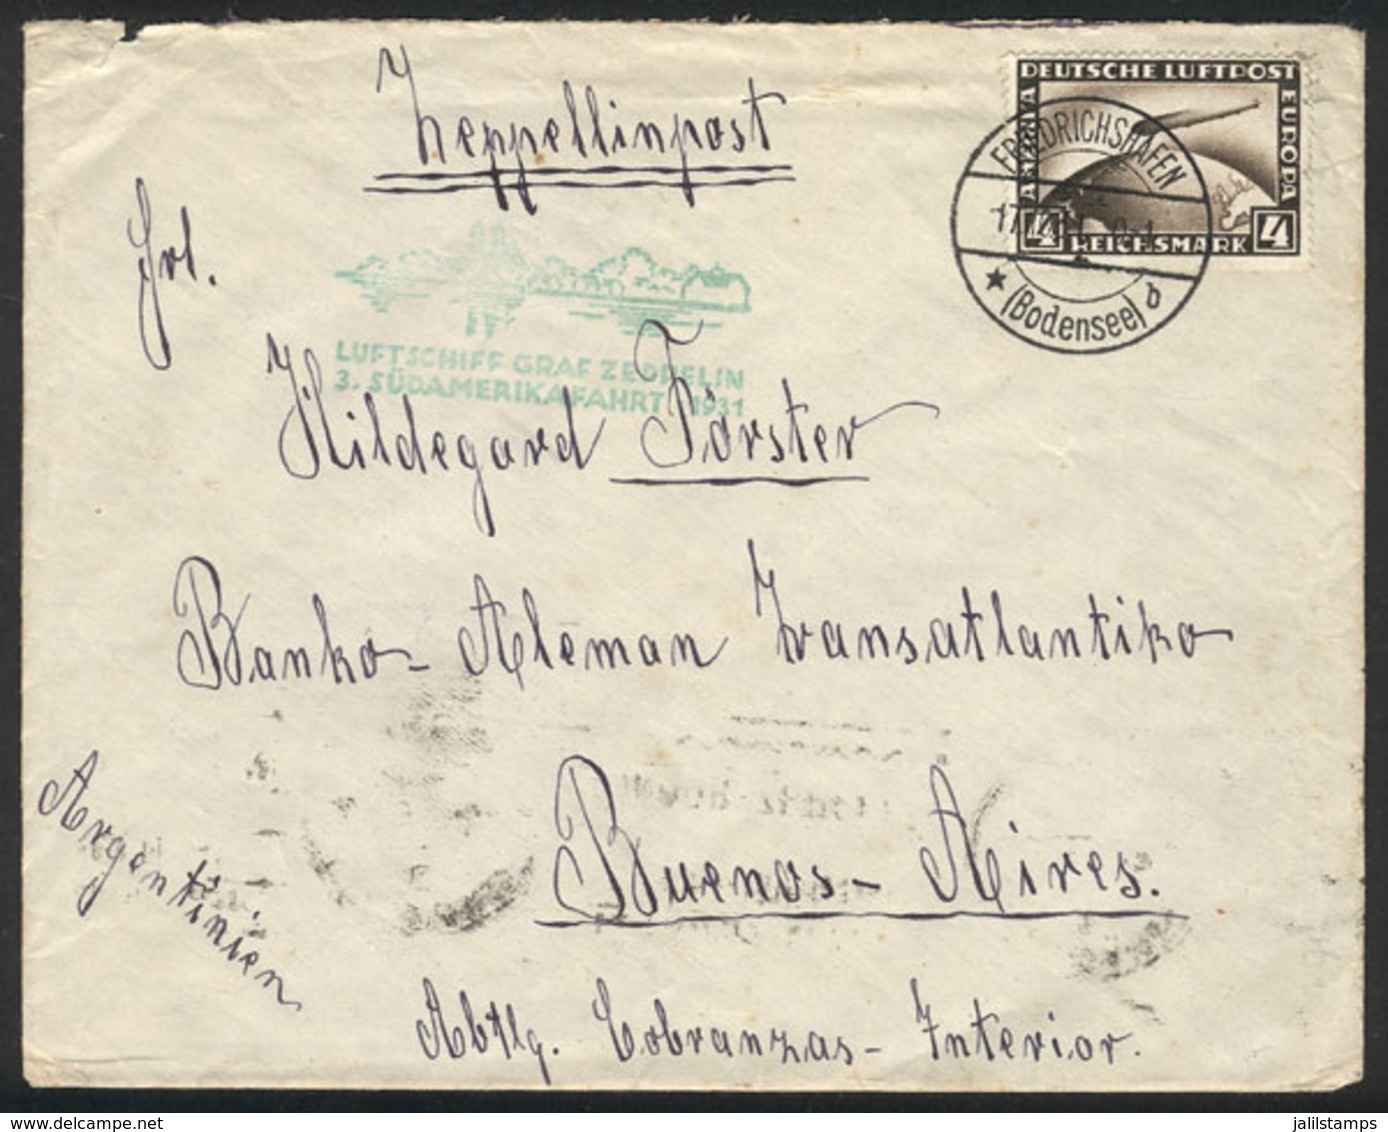 Zeppelinpost
DEUTSCHE LUFTPOST
EUROPA
AMERIKA
4 REICHSMARK 4
FRIEDRICHSHAFEN
(Bodensee) d
Frl.
LUFTSCHIFF GRAF ZEPPELIN
3. SÜDAMERIKAFAHRT 1931
Hildegard Förster
Banko-Aleman Transatlantiko
Argentinien
Buenos-Aires.
Abtlg. Cobranzas-Interior.
jalilstamps